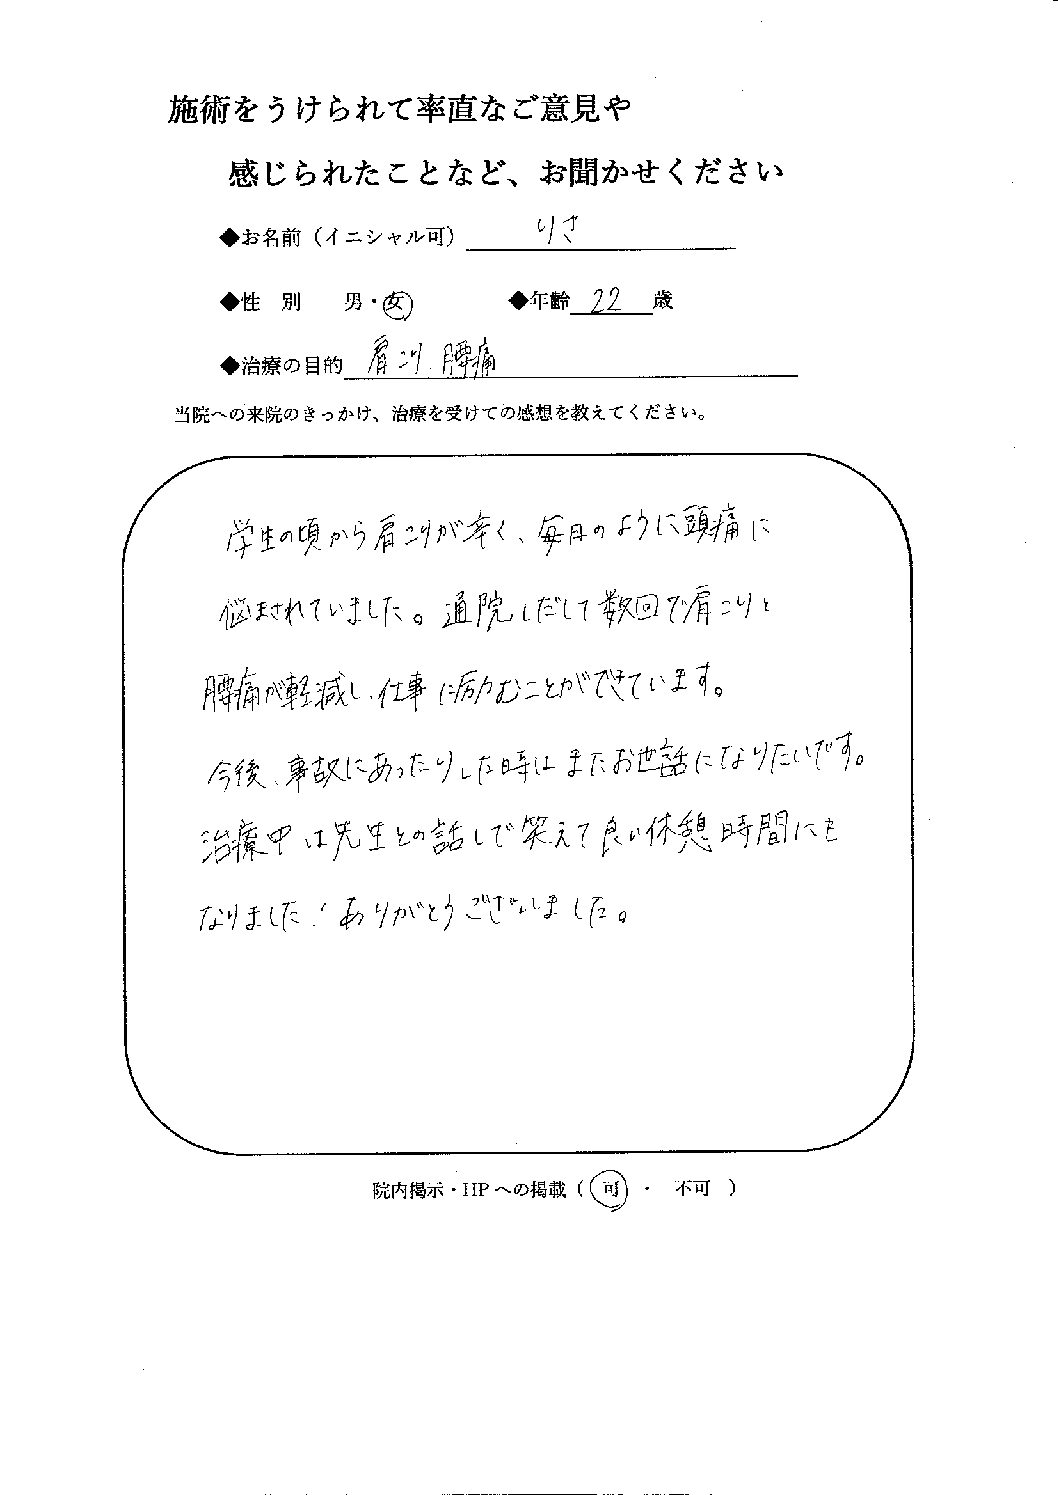 施術をうけられて率直なご意見や
感じられたことなど、お聞かせください
◆お名前（イニシャル可） りさ
◆性　別　　男・女　　◆年齢 22 歳
◆治療の目的 肩こり、腰痛
当院への来院のきっかけ、治療を受けての感想を教えてください。
学生の頃から肩こりが辛く、毎日のように頭痛に
悩まされていました。通院しだして数回で肩こりと
腰痛が軽減し、仕事に励むことができています。
今後、事故にあったりした時はまたお世話になりたいです。
治療中は先生との話しで笑えて良い休憩時間にも
なりました！ありがとうございました。
院内掲示・HPへの掲載（ 可 ・ 不可 ）